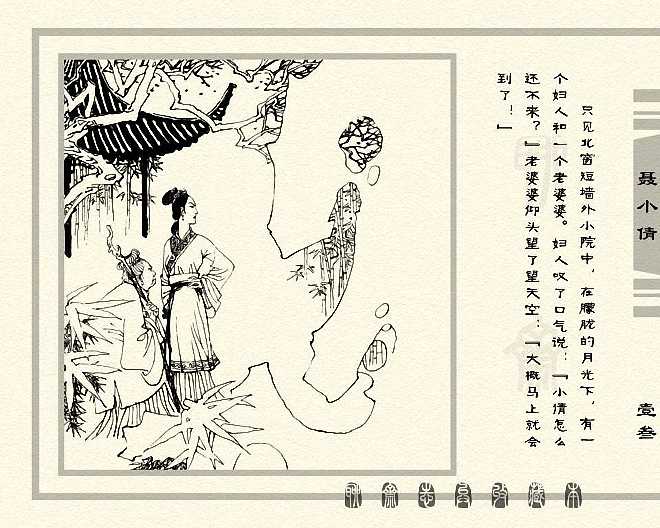 聂小倩
只见北窗短墙外小院中，在朦胧的月光下，有一
个妇人和一个老婆婆。妇人叹了口气说：「小倩怎么
还不来？」老婆婆仰头望了望天空：「大概马上就会
到了！」
壹叁